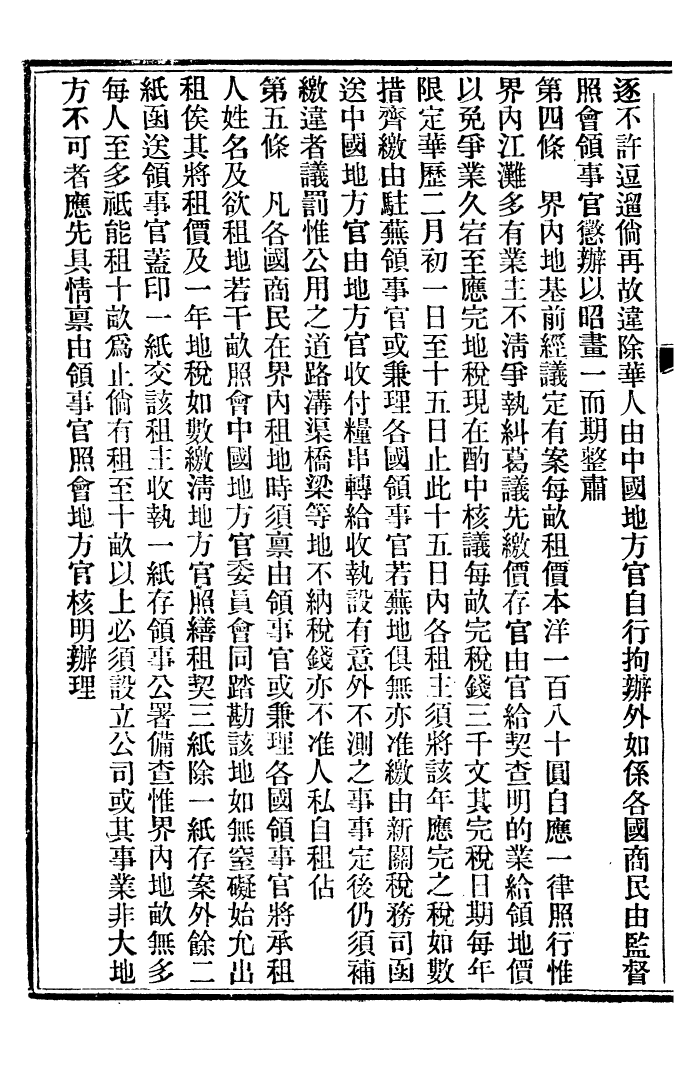 逐不許逗遛倘再故違除華人由中國地方官自行拘辦外如係各國商民由監督
照會領事官懲辦以昭畫一而期整肅
第四條　界內地基前經議定有案每畝租價本洋一百八十圓自應一律照行惟
界內江灘多有業主不清爭執糾葛議先繳價存官由官給契查明的業給領地價
以免爭業久宕至應完地稅現在酌中核議每畝完稅錢三千文其完稅日期每年
限定華歷二月初一日至十五日止此十五日內各租主須將該年應完之稅如數
措齊繳由駐蕪領事官或兼理各國領事官若蕪地俱無亦准繳由新關稅務司函
送中國地方官由地方官收付糧串轉給收執設有意外不測之事事定後仍須補
繳違者議罰惟公用之道路溝渠橋梁等地不納稅錢亦不准人私自租佔
第五條　凡各國商民在界內租地時須禀由領事官或兼理各國領事官將承租
人姓名及欲租地若干畝照會中國地方官委員會同踏勘該地如無窒礙始允出
租俟其將租價及一年地稅如數繳清地方官照繕租契三紙除一紙存案外餘二
紙函送領事官蓋印一紙交該租主收執一紙存領事公署備查惟界內地畝無多
每人至多祗能租十畝為止倘有租至十畝以上必須設立公司或其事業非大地
方不可者應先具情禀由領事官照會地方官核明辦理